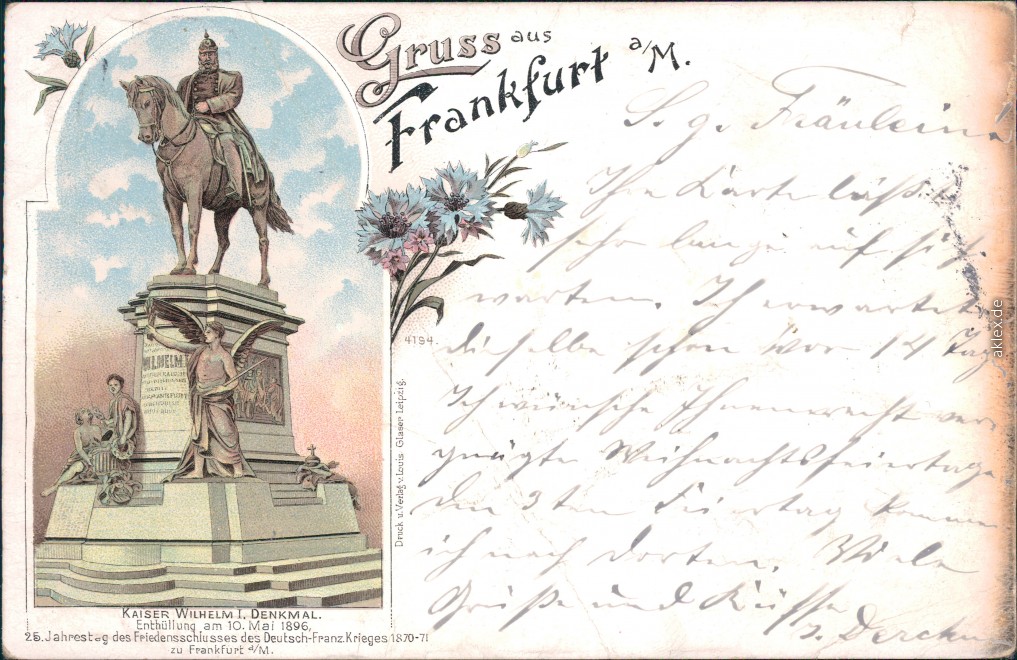 Gruss aus
Frankfurt a/M.
S. g. Fräulein!
Ihre Karte läßt
sehr lange auf sich
warten. Ich erwartete
dieselbe schon vor 14 Tag
Ich wünsche Ihnen recht ver-
gnügte Weihnachtsfeiertage
den 3ten Feiertag komme
ich nach dorten. Viele
Grüße und Küsse
4194.
Druck u. Verlag v. Louis Glaser Leipzig.
WILHELM I
KAISER WILHELM I. DENKMAL.
Enthüllung am 10. Mai 1896,
25. Jahrestag des Friedensschlusses des Deutsch-Franz. Krieges 1870-71
zu Frankfurt a/M.
aklex.de